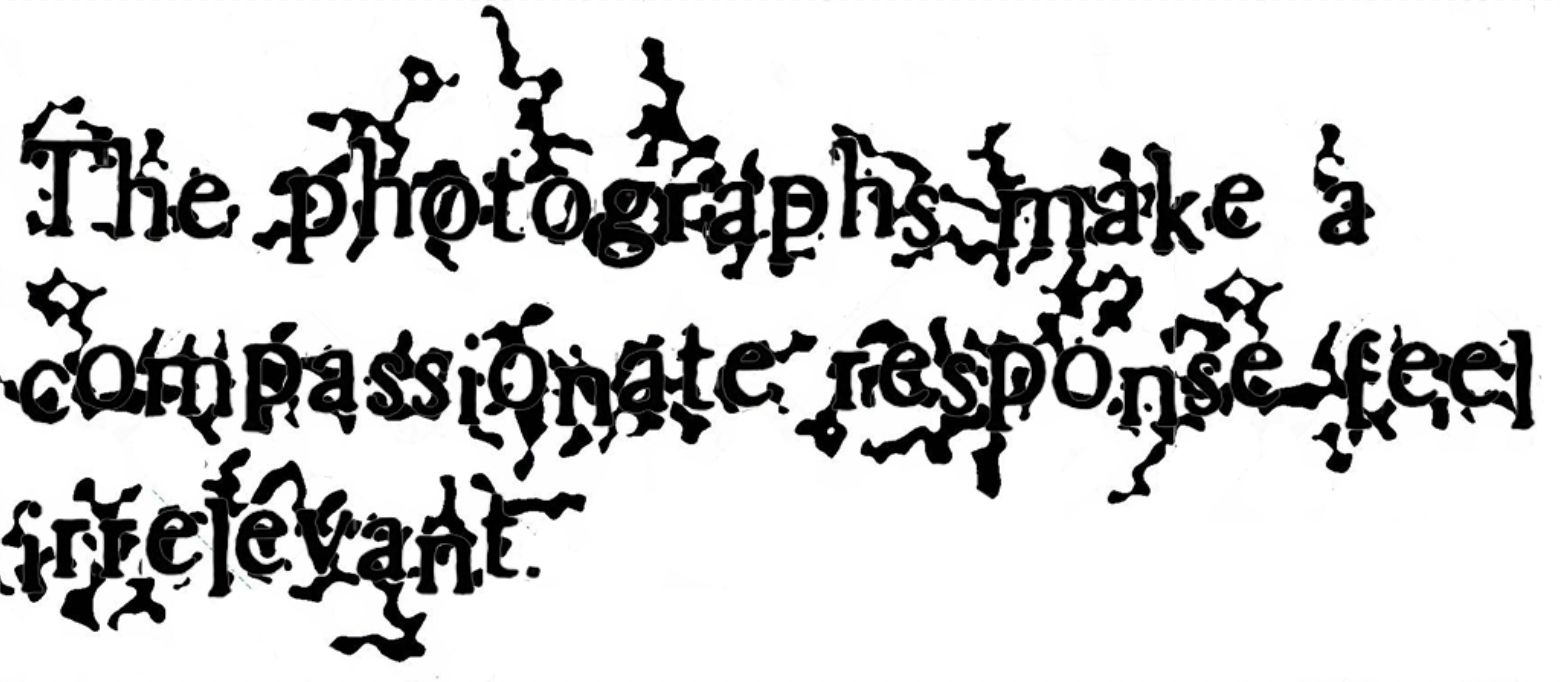 The photographs make a
compassionate response feel
irrelevant.